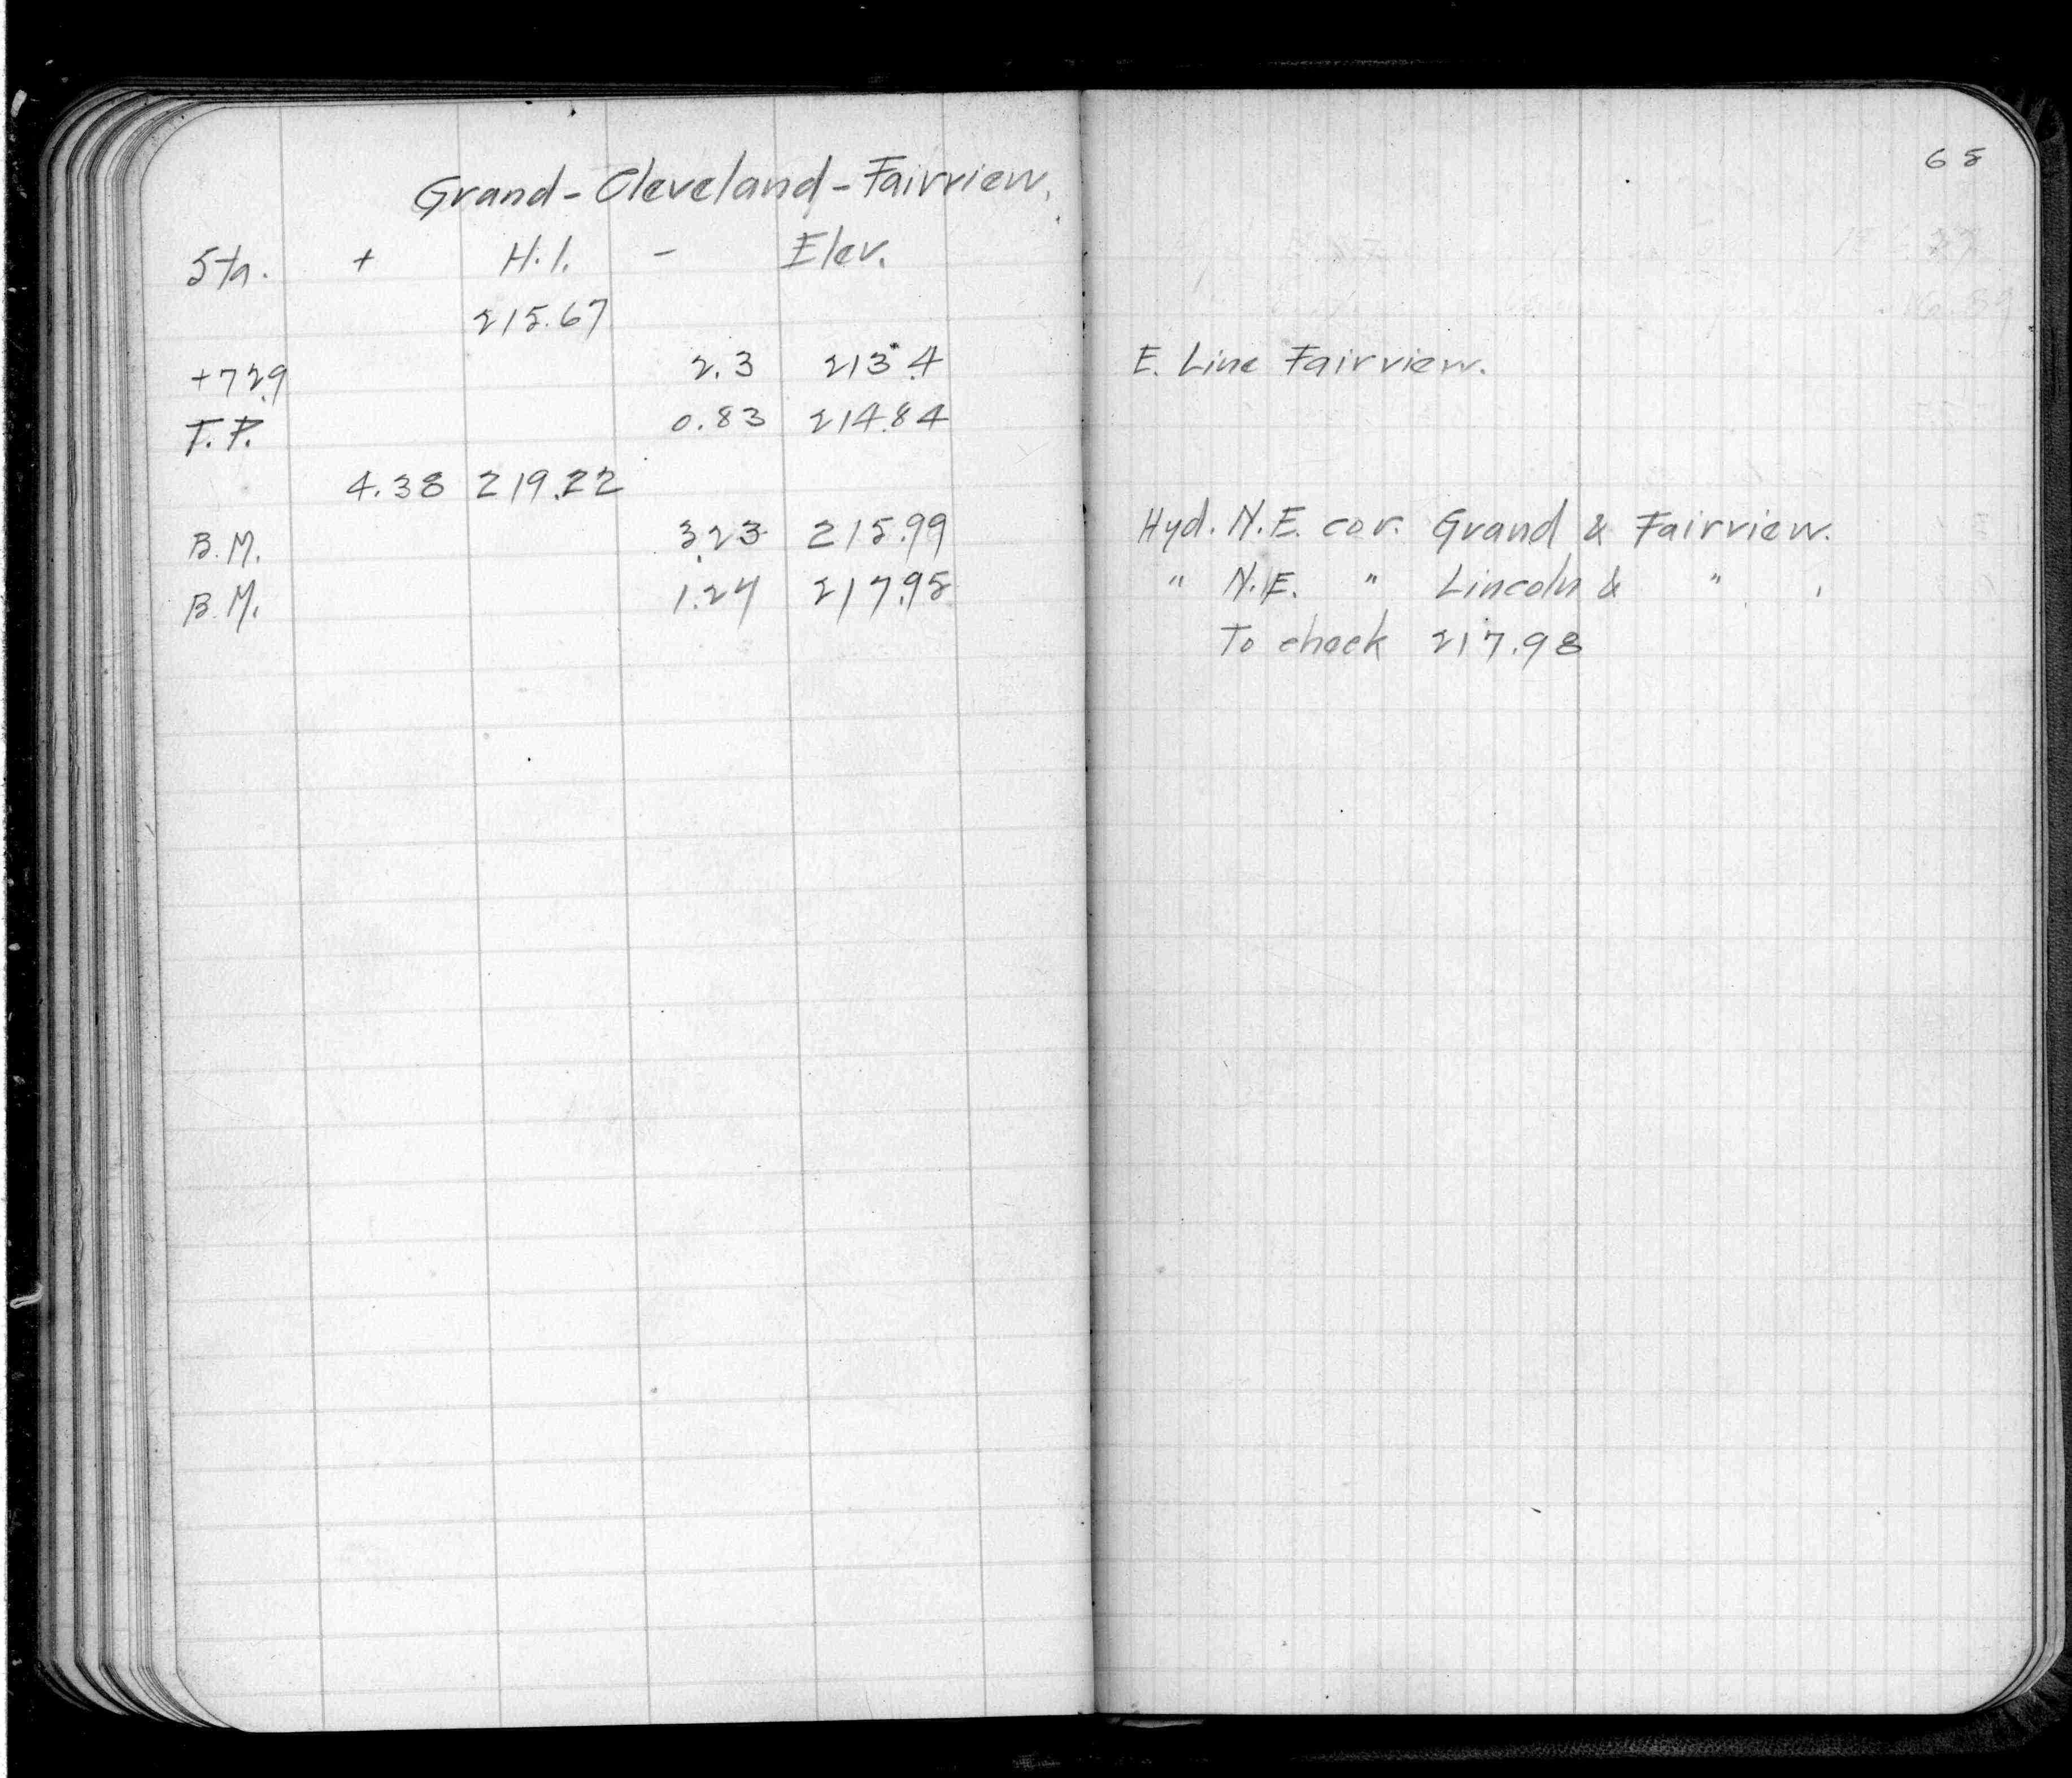 65
Grand - Cleveland - Fairview.
Sta. + H.I. - Elev.
215.67
+72.9 2.3 213.4 E. Line Fairview.
T.P. 0.83 214.84
4.38 219.22
B.M. 3.23 215.99 Hyd. N.E. cor. Grand & Fairview.
B.M. 1.27 217.95 " N.E. " Lincoln & " .
To check 217.98